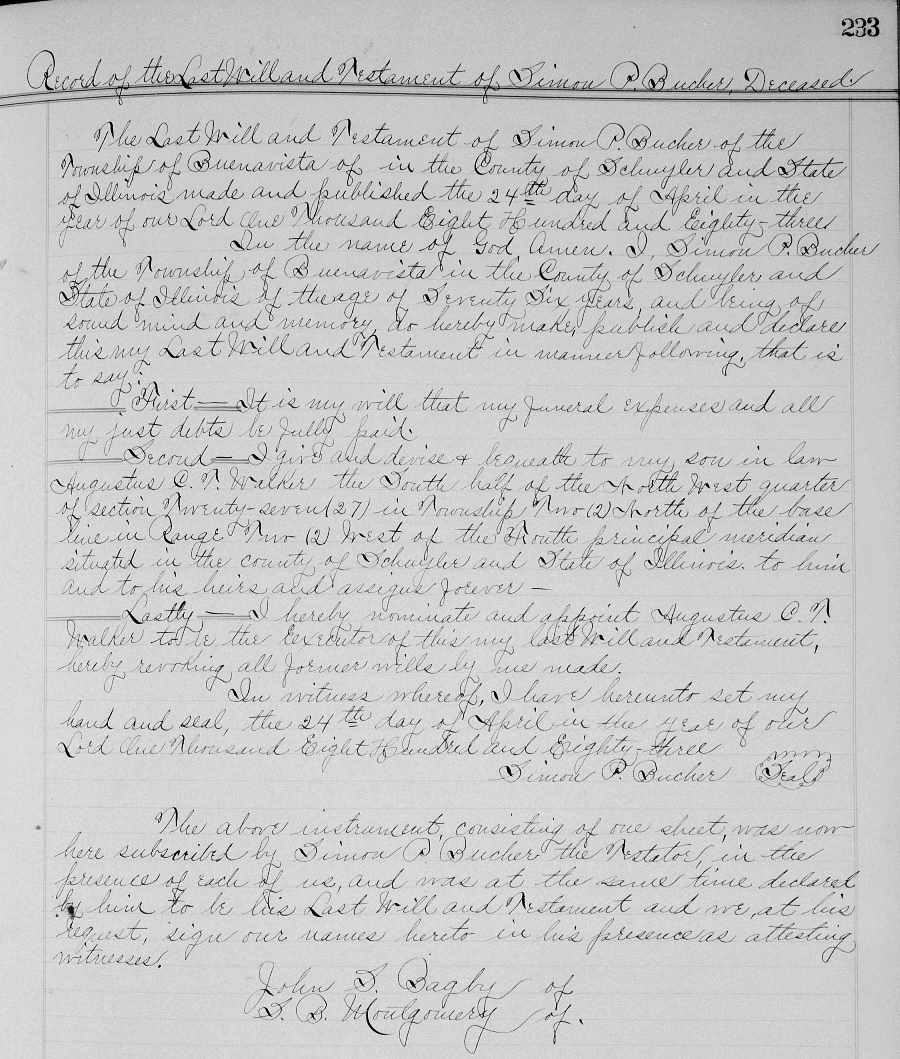 233
Record of the Last Will and Testament of Simon P. Bucher, Deceased
The Last Will and Testament of Simon P. Bucher of the
Township of Buenavista of in the County of Schuyler and State
of Illinois made and published the 24th day of April in the
year of our Lord One Thousand Eight Hundred and Eighty-three
In the name of God Amen. I, Simon P. Bucher
of the Township of Buenavista in the County of Schuyler and
State of Illinois of the age of Seventy Six years, and being of
sound mind and memory, do hereby make, publish and declare
this my Last Will and Testament in manner following, that is
to say:
First — It is my will that my funeral expenses and all
my just debts be fully paid.
Second — I give and devise & bequeath to my son in law
Augustus C. T. Walker the South half of the North West quarter
of section Twenty-seven (27) in Township Two (2) North of the base
line in Range Two (2) West of the Fourth principal meridian
situated in the county of Schuyler and State of Illinois. to him
and to his heirs and assigns forever —
Lastly, — I hereby nominate and appoint Augustus C. T.
Walker to be the Executor of this my last Will and Testament,
hereby revoking all former wills by me made.
In witness whereof, I have hereunto set my
hand and seal, the 24th day of April in the year of our
Lord One Thousand Eight Hundred and Eighty-three
Simon P. Bucher (Seal)
The above instrument, consisting of one sheet, was now
here subscribed by Simon P Bucher the Testator, in the
presence of each of us, and was at the same time declared
by him to be his Last Will and Testament and we, at his
request, sign our names hereto in his presence as attesting
witnesses.
John S. Bagby of
S. B. Montgomery of.